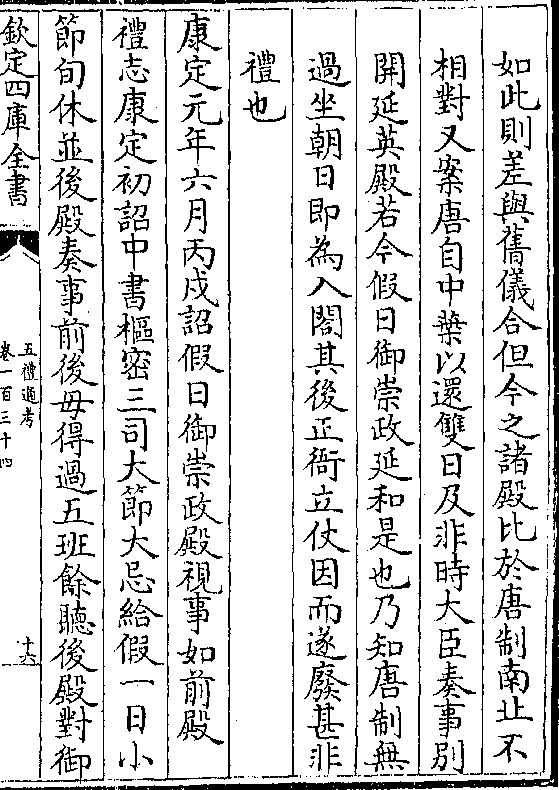 如此則差與舊儀合但今之諸殿比於唐制南北不
相對又案唐自中葉以還雙日及非時大臣奏事别
開延英殿若今假日御崇政延和是也乃知唐制無
過坐朝日即為入閤其後正衙立仗因而遂廢甚非
禮也
康定元年六月丙戌詔假日御崇政殿視事如前殿
禮志康定初詔中書樞密三司大節大忌給假一日小
節旬休並後殿奏事前後毋得過五班餘聽後殿對御
欽定四庫全書
五禮通考
卷一百三十四
十六